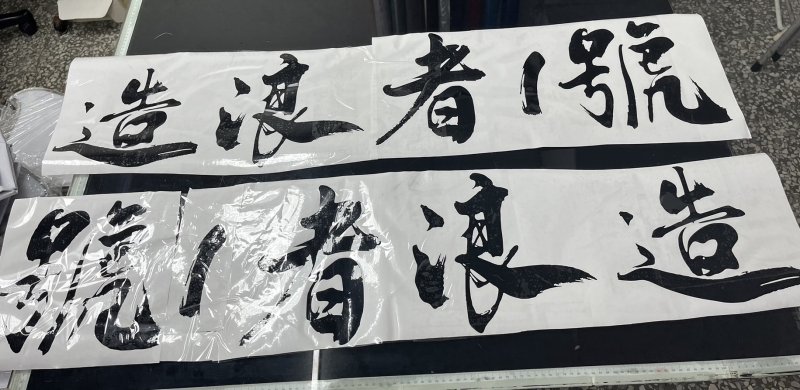 造浪者1號
造浪者1號